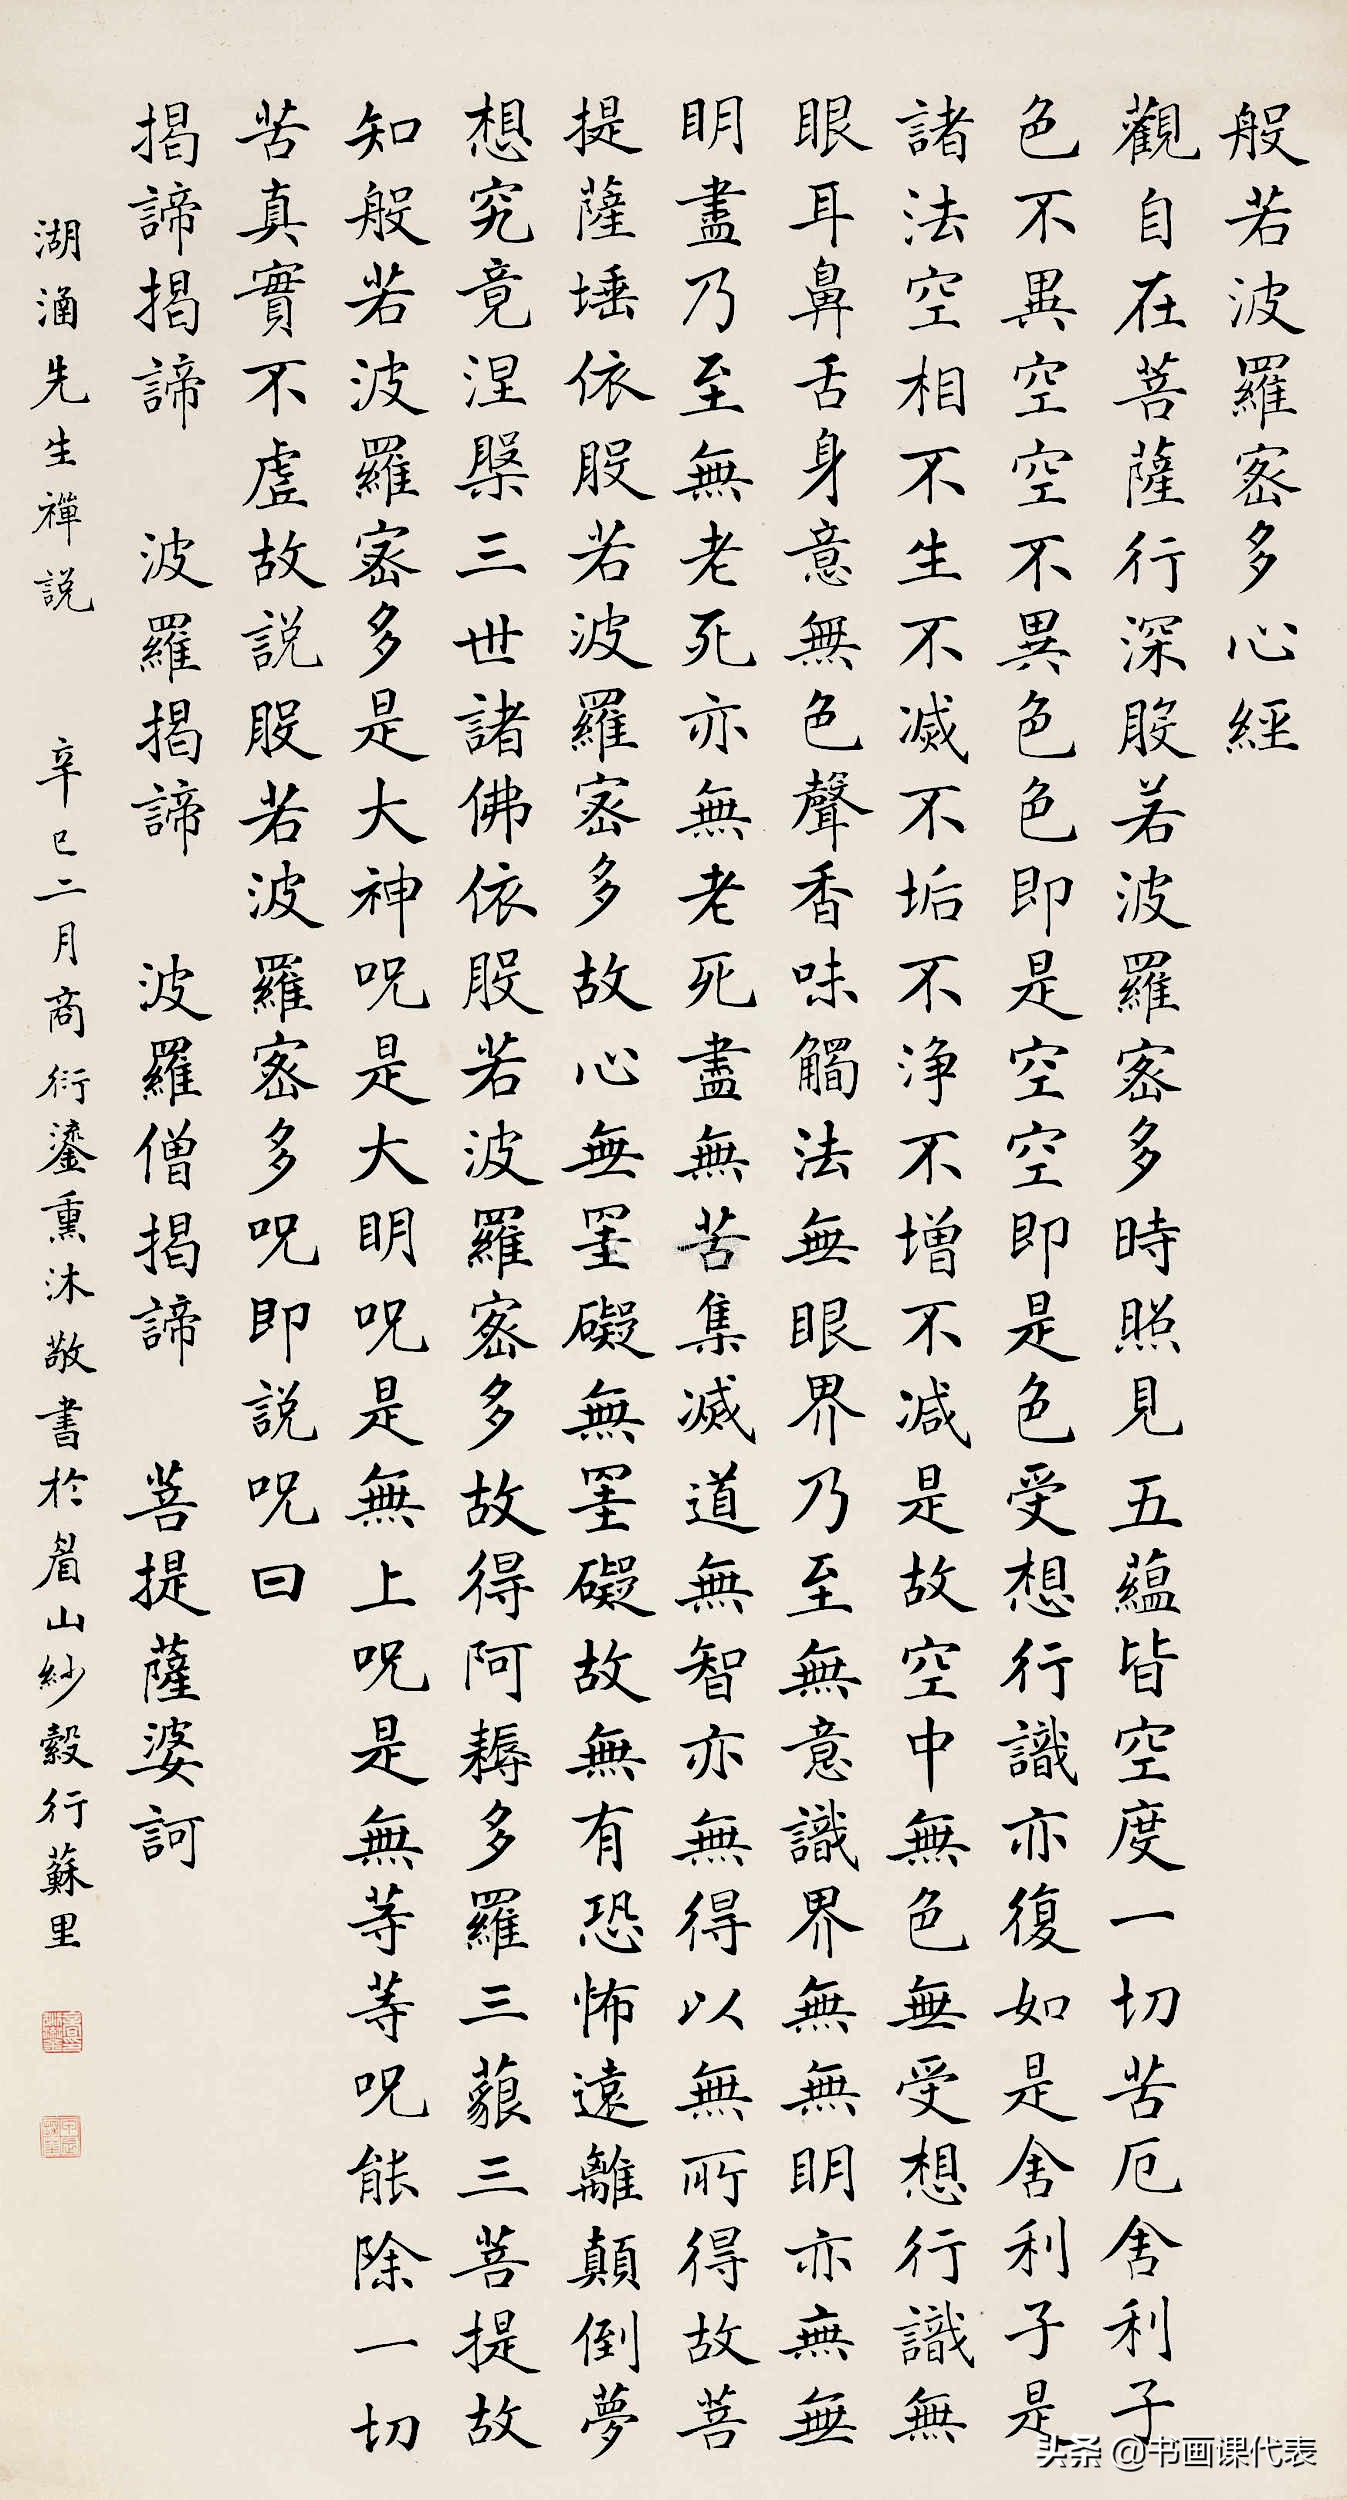 般若波羅密多心經
觀自在菩薩行深般若波羅密多時照見五蘊皆空度一切苦厄舍利子
色不異空空不異色色即是空空即是色受想行識亦復如是舍利子是
諸法空相不生不滅不垢不淨不增不減是故空中無色無受想行識無
眼耳鼻舌身意無色聲香味觸法無眼界乃至無意識界無無明亦無無
明盡乃至無老死亦無老死盡無苦集滅道無智亦無得以無所得故菩
提薩埵依般若波羅密多故心無罣礙無罣礙故無有恐怖遠離顛倒夢
想究竟涅槃三世諸佛依般若波羅密多故得阿耨多羅三藐三菩提故
知般若波羅密多是大神呪是大明呪是無上呪是無等等呪能除一切
苦真實不虛故說般若波羅密多呪即說呪曰
揭諦揭諦 波羅揭諦 波羅僧揭諦 菩提薩婆訶
湖涵先生禪說 辛巳二月商衍鎏熏沐敬書於眉山紗縠行蘇里
头条 @书画课代表